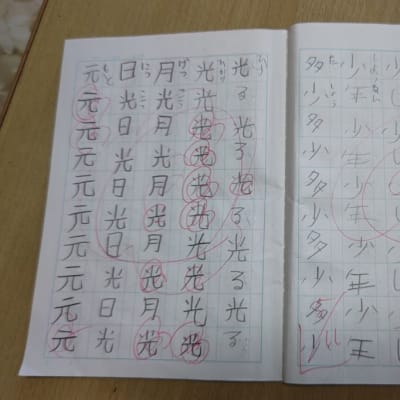 少年少年少年少年少年
しょう
ねん
多少多少多少多少多少
た
しょう
光る光る光る光る光る
ひか
光光光光光光光光光光
ひかり
月光月光月光月光月光
げっ
こう
日光日光日光日光日光
にっ
こう
元元元元元元元元元元
もと